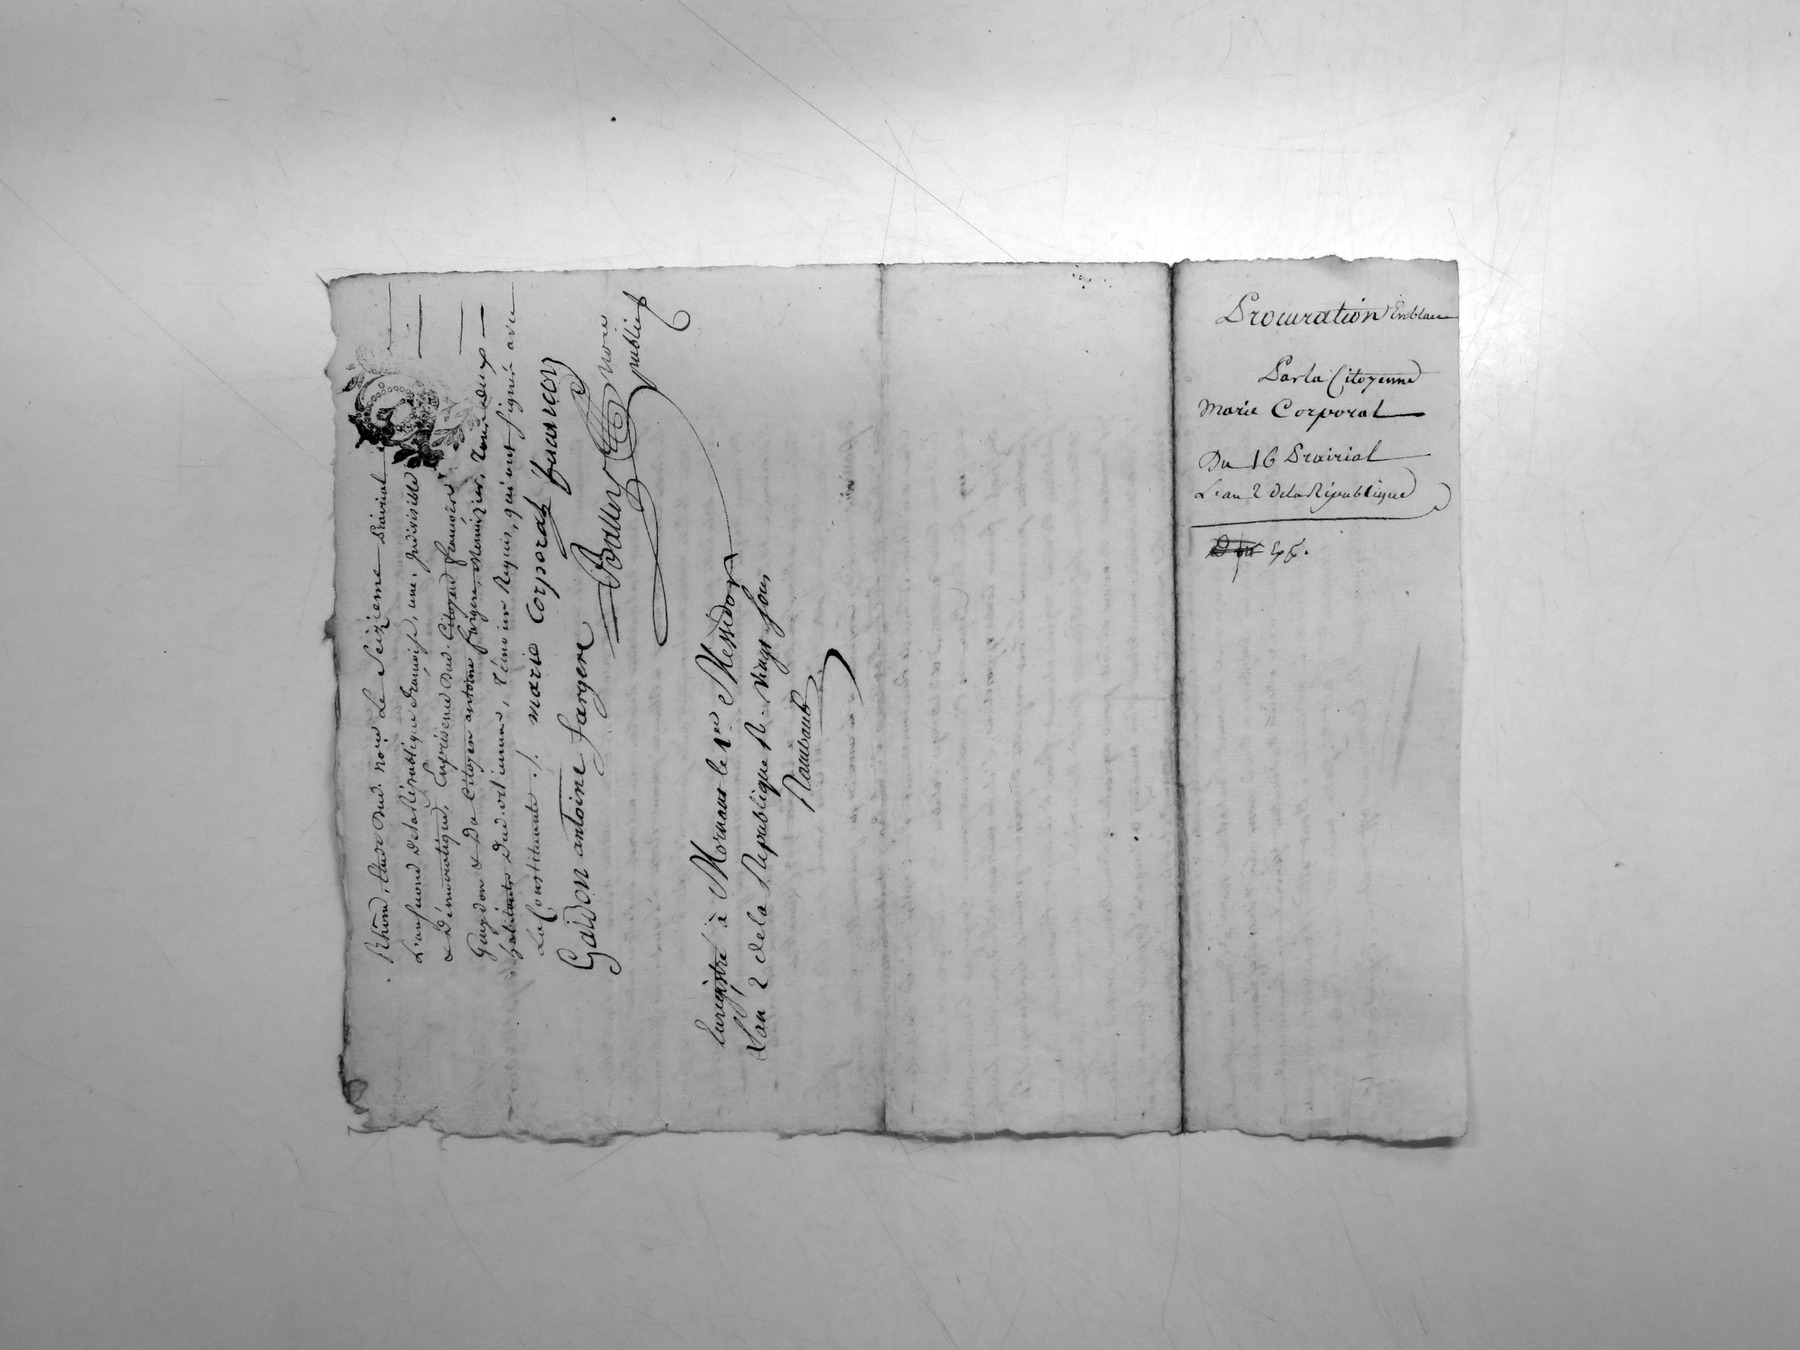 Procuration Enblanc
Par la Citoyenne
Marie Corporal
Du 16 Prairial
L'an 2 de la République
Rhône, Etude dud. Nore Le Seizieme Prairial
L'an second de la République françoise, une, Indivisible
& Démocratique, En présence dud. Citoyen françois
Guaydon & Du Citoyen antoine fargere, Menuizier, Tous deux
habitants dud. , Témoins Requis, qui ont signé avec
La Constituante ./. marie Corporal
Gaidon antoine fargere
Nore
public
Enregistré à Mornant le 1er Messidor
L'an 2 de la Republique R. Vingt sous